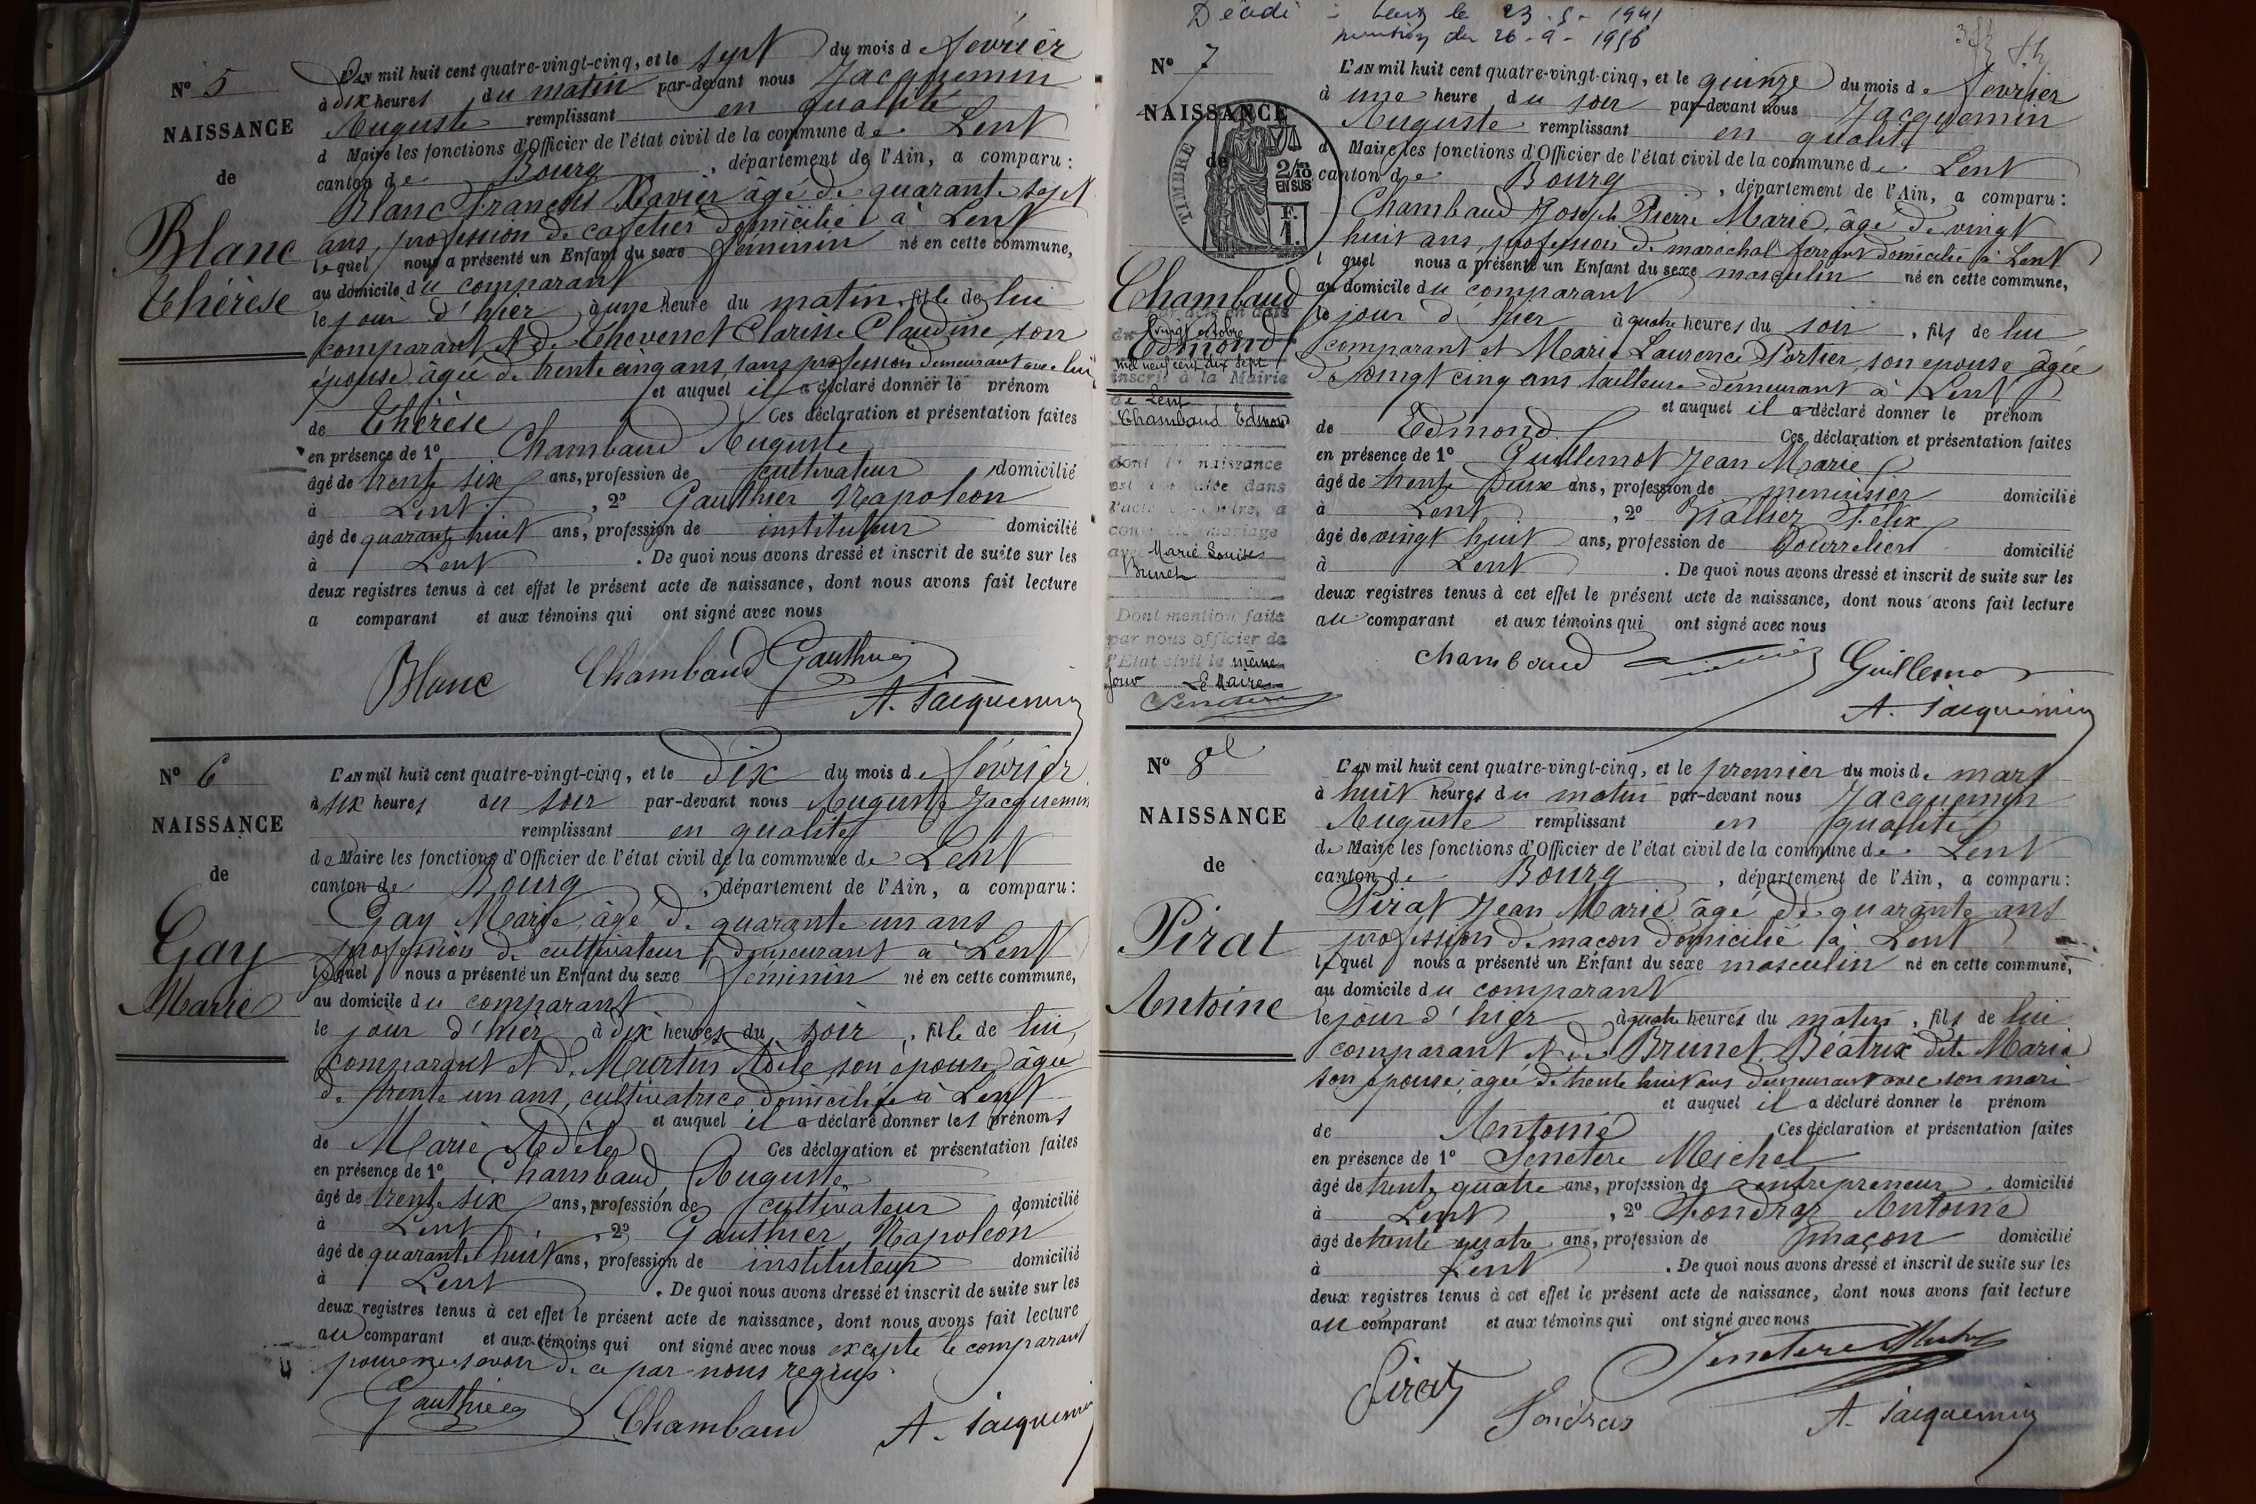 N° 5
NAISSANCE
de
Blanc
Thérèse
L'AN mil huit cent quatre-vingt-cinq, et le sept du mois de février
à dix heures du matin par-devant nous Jacquemin
Auguste remplissant en qualité
d Maire les fonctions d'Officier de l'état civil de la commune de Lent
canton de Bourg, département de l'Ain, a comparu :
Blanc François Xavier âgé de quarante sept
ans, profession de cafetier domicilié à Lent
lequel nous a présenté un Enfant du sexe féminin né en cette commune,
au domicile du comparant
le jour d'hier à une heure du matin, fille de lui
comparant et de Thevenet Clarisse Claudine, son
épouse, âgée de trente cinq ans, sans profession demeurant avec lui
et auquel il a déclaré donner le prénom
de Thérèse Ces déclaration et présentation faites
en présence de 1° Chambaud Auguste
âgé de trente six ans, profession de cultivateur domicilié
à Lent, 2° Gauthier Napoléon
âgé de quarante huit ans, profession de instituteur domicilié
à Lent. De quoi nous avons dressé et inscrit de suite sur les
deux registres tenus à cet effet le présent acte de naissance, dont nous avons fait lecture
a comparant et aux témoins qui ont signé avec nous
Blanc Chambaud Gauthier
A. Jacquemin
N° 6
NAISSANCE
de
Gay
Marie
L'AN mil huit cent quatre-vingt-cinq, et le dix du mois de février
à six heures du soir par-devant nous Auguste Jacquemin
remplissant en qualité
de Maire les fonctions d'Officier de l'état civil de la commune de Lent
canton de Bourg, département de l'Ain, a comparu :
Gay Marie, âgé de quarante un ans
profession de cultivateur demeurant à Lent
lequel nous a présenté un Enfant du sexe féminin né en cette commune,
au domicile du comparant
le jour d'hier à dix heures du soir, fille de lui,
comparant et de Martin Adèle son épouse, âgée
de trente un ans, cultivatrice domiciliée à Lent
et auquel il a déclaré donner les prénoms
de Marie Adèle Ces déclaration et présentation faites
en présence de 1° Chambaud Auguste
âgé de trente six ans, profession de cultivateur domicilié
à Lent, 2° Gauthier Napoléon
âgé de quarante huit ans, profession de instituteur domicilié
à Lent. De quoi nous avons dressé et inscrit de suite sur les
deux registres tenus à cet effet le présent acte de naissance, dont nous avons fait lecture
au comparant et aux témoins qui ont signé avec nous excepté le comparant
pour ne savoir de ce par nous requis.
Gauthier Chambaud A. Jacquemin
Décédé à le 23-5-1941
du 26-9-1956
N° 7
NAISSANCE
de
TIMBRE
2/10
EN SUS
F.
1.
Chambaud
Edmond
Par acte en date
du vingt octobre
mil neuf cent dix sept
inscrit à la Mairie
de Lent
Chambaud Edmond
dont la naissance
est constatée dans
l'acte ci-contre, a
contracté mariage
avec Marie Louise
Brunet
Dont mention faite
par nous officier de
l'Etat civil le même
jour Le Maire
L'AN mil huit cent quatre-vingt-cinq, et le quinze du mois de février
à une heure du soir par-devant nous Jacquemin
Auguste remplissant en qualité
d Maire les fonctions d'Officier de l'état civil de la commune de Lent
canton de Bourg, département de l'Ain, a comparu :
Chambaud Joseph Pierre Marie, âgé de vingt
huit ans, profession de maréchal ferrant domicilié à Lent
lquel nous a présenté un Enfant du sexe masculin né en cette commune,
au domicile du comparant
le jour d'hier à quatre heures du soir, fils de lui
comparant et Marie Laurence Portier, son épouse âgée
de vingt cinq ans tailleuse demeurant à Lent
et auquel il a déclaré donner le prénom
de Edmond. Ces déclaration et présentation faites
en présence de 1° Guillemot Jean Marie
âgé de trente deux ans, profession de menuisier domicilié
à Lent, 2° Viallier Félix
âgé de vingt huit ans, profession de bourrelier domicilié
à Lent. De quoi nous avons dressé et inscrit de suite sur les
deux registres tenus à cet effet le présent acte de naissance, dont nous avons fait lecture
au comparant et aux témoins qui ont signé avec nous
Chambaud Guillemot
A. Jacquemin
N° 8
NAISSANCE
de
Pirat
Antoine
L'AN mil huit cent quatre-vingt-cinq, et le premier du mois de mars
à huit heures du matin par-devant nous Jacquemin
Auguste remplissant en qualité
de Maire les fonctions d'Officier de l'état civil de la commune de Lent
canton de Bourg, département de l'Ain, a comparu :
Pirat Jean Marie âgé de quarante ans
profession de maçon domicilié à Lent
lequel nous a présenté un Enfant du sexe masculin né en cette commune,
au domicile du comparant
le jour d'hier à quatre heures du matin, fils de lui
comparant et de Brunet Béatrix dite Marie
son épouse, âgée de trente huit ans demeurant avec son mari
et auquel il a déclaré donner le prénom
de Antoine Ces déclaration et présentation faites
en présence de 1° Senetere Michel
âgé de trente quatre ans, profession de entrepreneur domicilié
à Lent, 2° Fondras Antoine
âgé de trente quatre ans, profession de maçon domicilié
à Lent. De quoi nous avons dressé et inscrit de suite sur les
deux registres tenus à cet effet le présent acte de naissance, dont nous avons fait lecture
au comparant et aux témoins qui ont signé avec nous
Pirat Senetere
Fondras A. Jacquemin